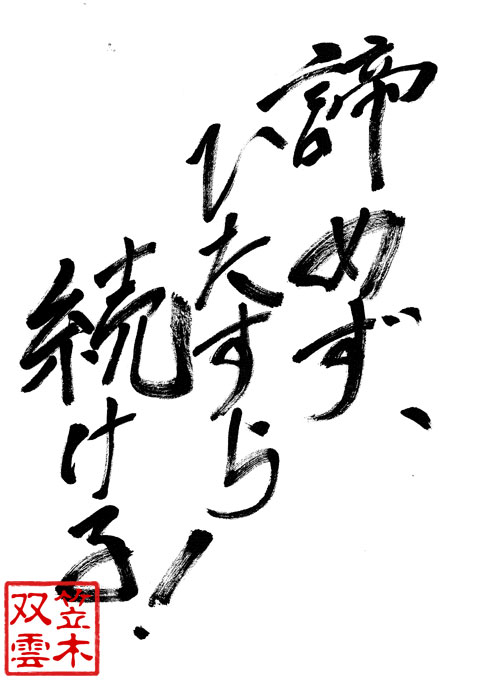 諦めず、
ひたすら
続ける!
笠木
双雲